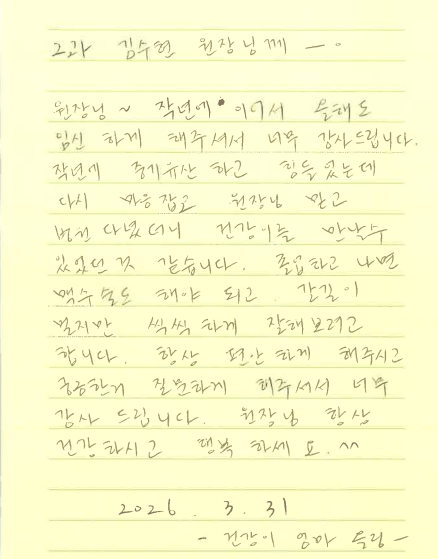 2과 김수현 원장님께 —.
원장님~ 작년에 이어서 올해도
임신 하게 해주셔서 너무 감사드립니다.
작년에 중기유산 하고 힘들었는데
다시 마음 잡고 원장님 믿고
병원 다녔더니 건강이를 만날수
있었던 것 같습니다. 졸업하고 나면
맥수술도 해야 되고 갈길이
멀지만 씩씩하게 잘해보려고
합니다. 항상 편안하게 해주시고
궁금한거 질문하게 해주셔서 너무
감사 드립니다. 원장님 항상
건강하시고 행복 하세요.^^
2026. 3. 31
- 건강이 엄마 올림 -